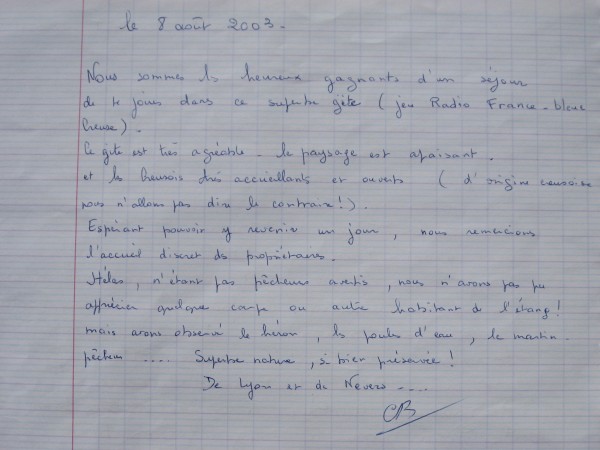 le 8 août 2003.
Nous sommes les heureux gagnants d'un séjour
de 4 jours dans ce superbe gîte (jeu Radio France-bleue
Creuse).
Ce gîte est très agréable - le paysage est apaisant.
et les Creusois très accueillants et ouverts (d'origine creusoise
nous n'allons pas dire le contraire!).
Espérant pouvoir y revenir un jour, nous remercions
l'accueil discret des propriétaires.
Hélas, n'étant pas pêcheurs avertis, nous n'avons pas pu
apprécier quelque carpe ou autre habitant de l'étang!
mais avons observé le héron, les poules d'eau, le martin-
pêcheur .... Superbe nature, si bien préservée!
De Lyon et de Nevers ....
CB